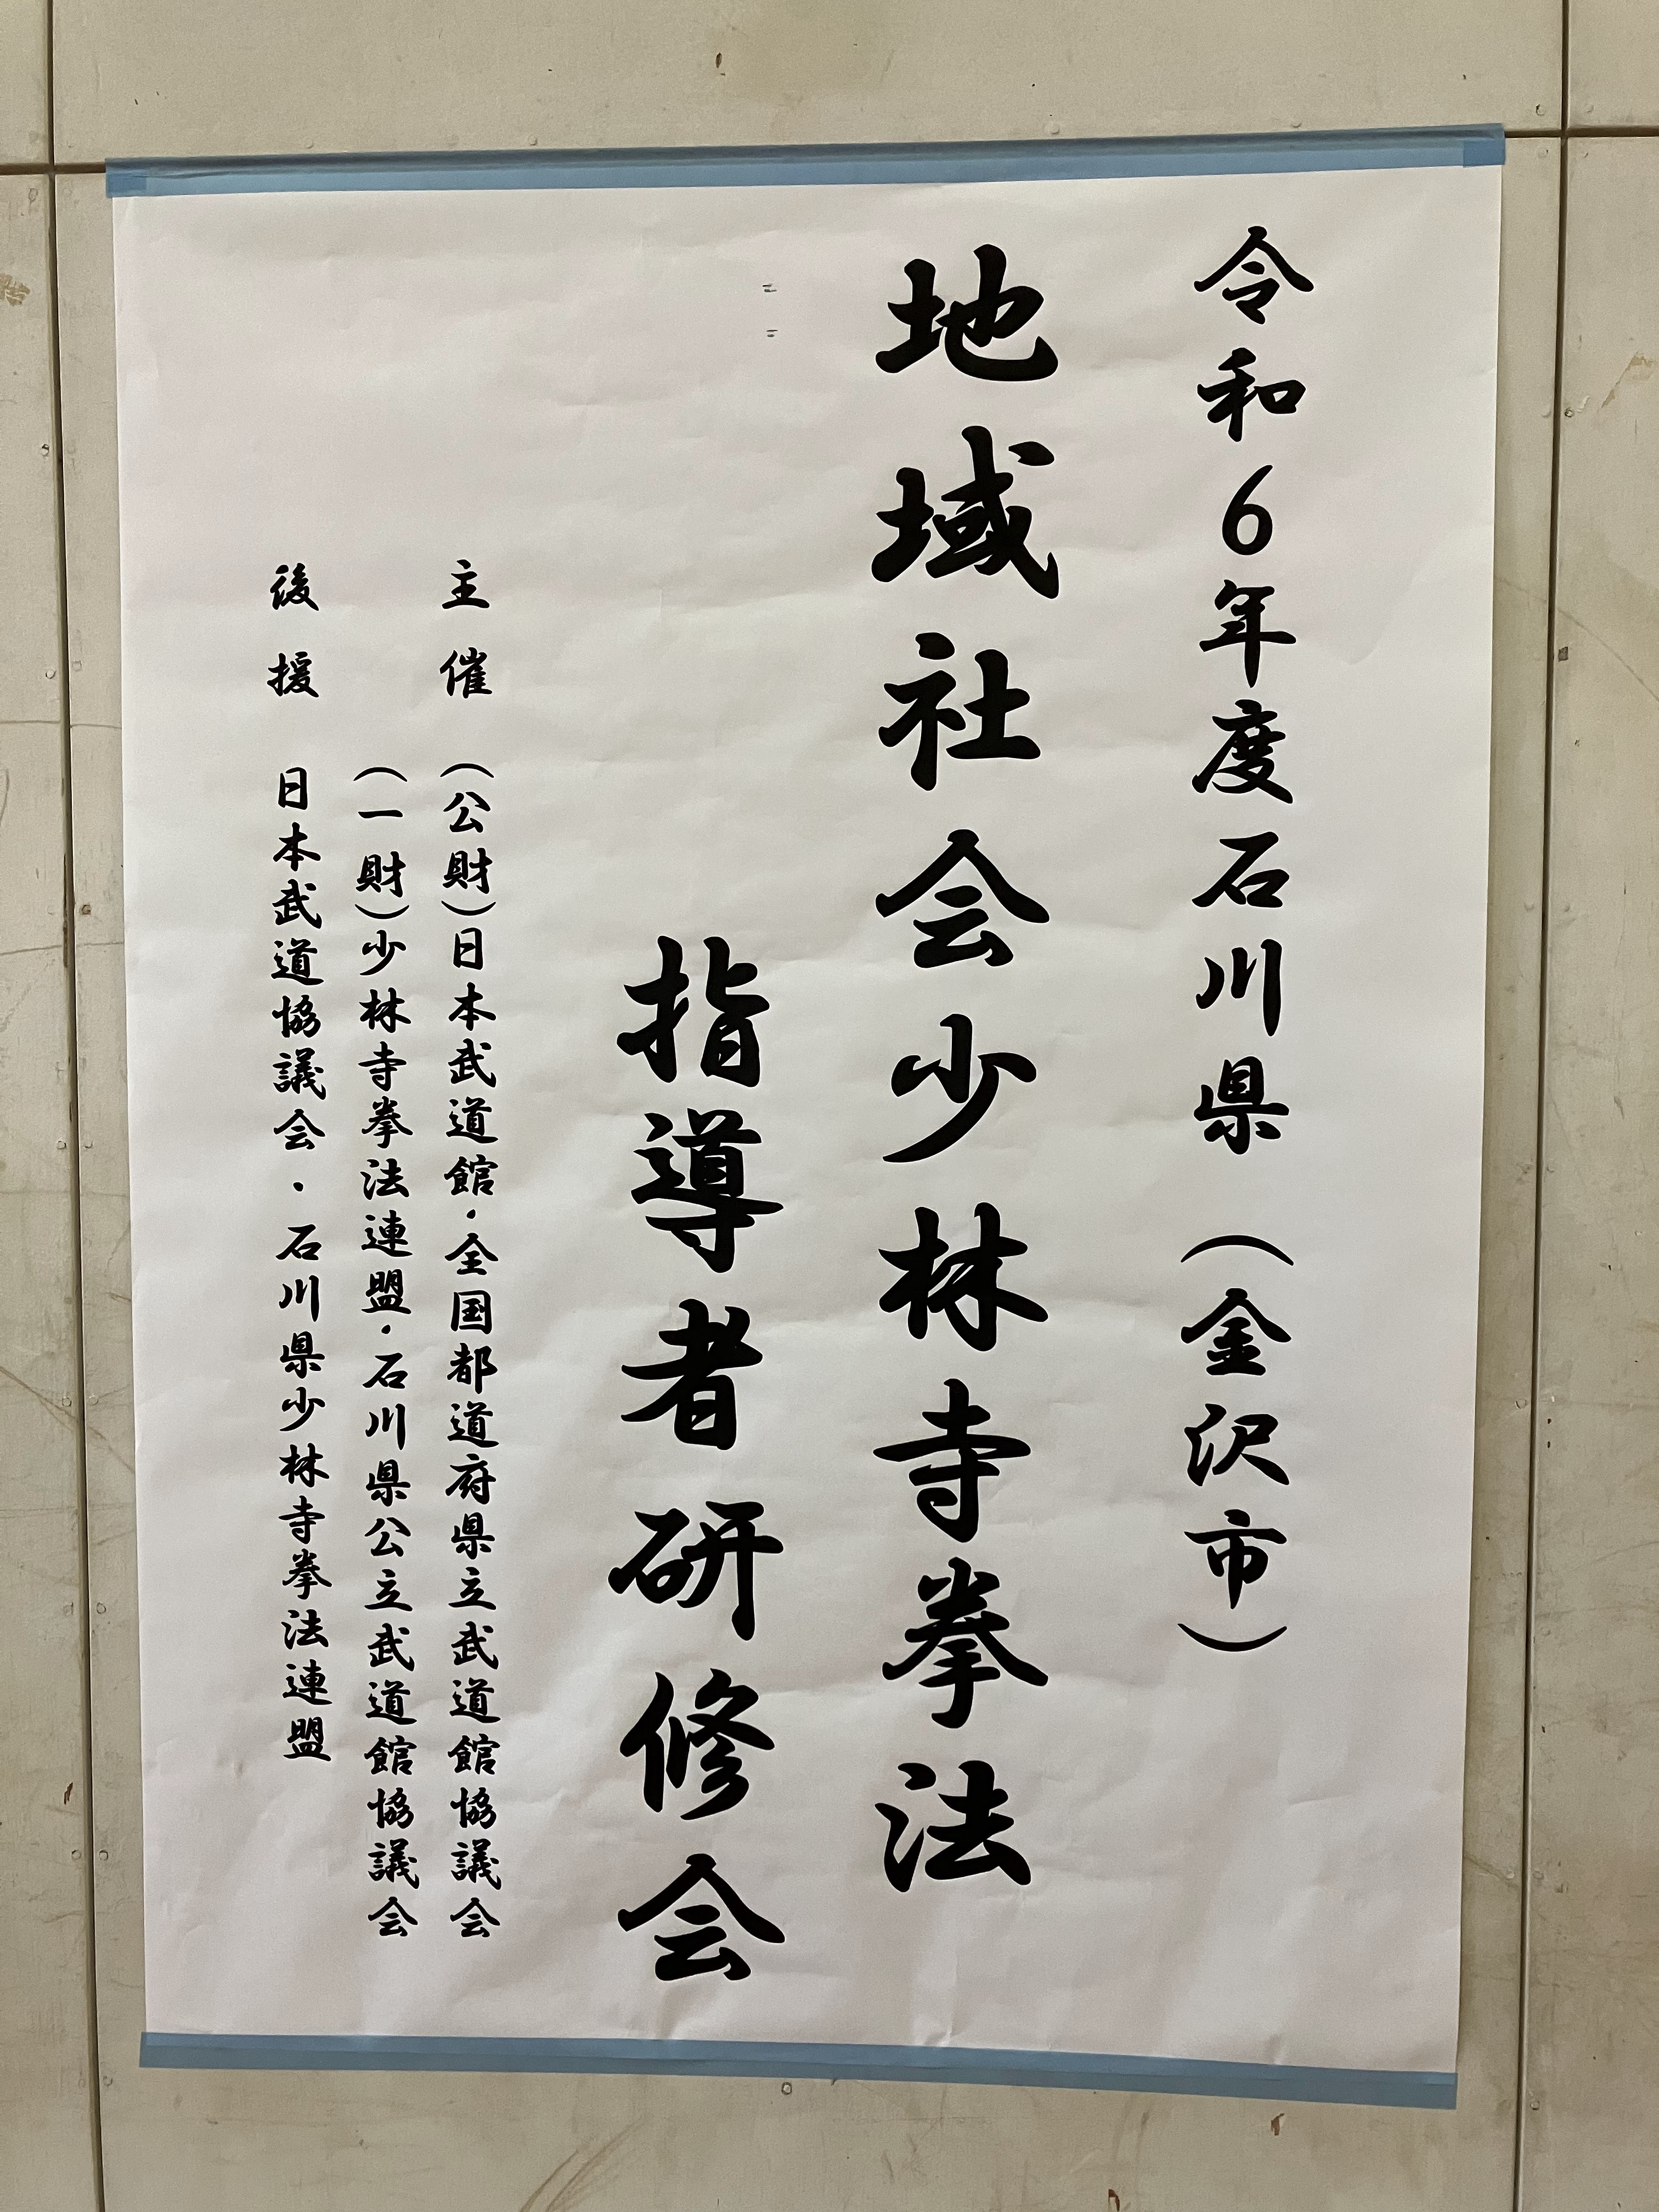 令和6年度石川県（金沢市）
地域社会少林寺拳法
指導者研修会
主催　（公財）日本武道館・全国都道府県立武道館協議会
（一財）少林寺拳法連盟・石川県公立武道館協議会
後援　日本武道協議会・石川県少林寺拳法連盟